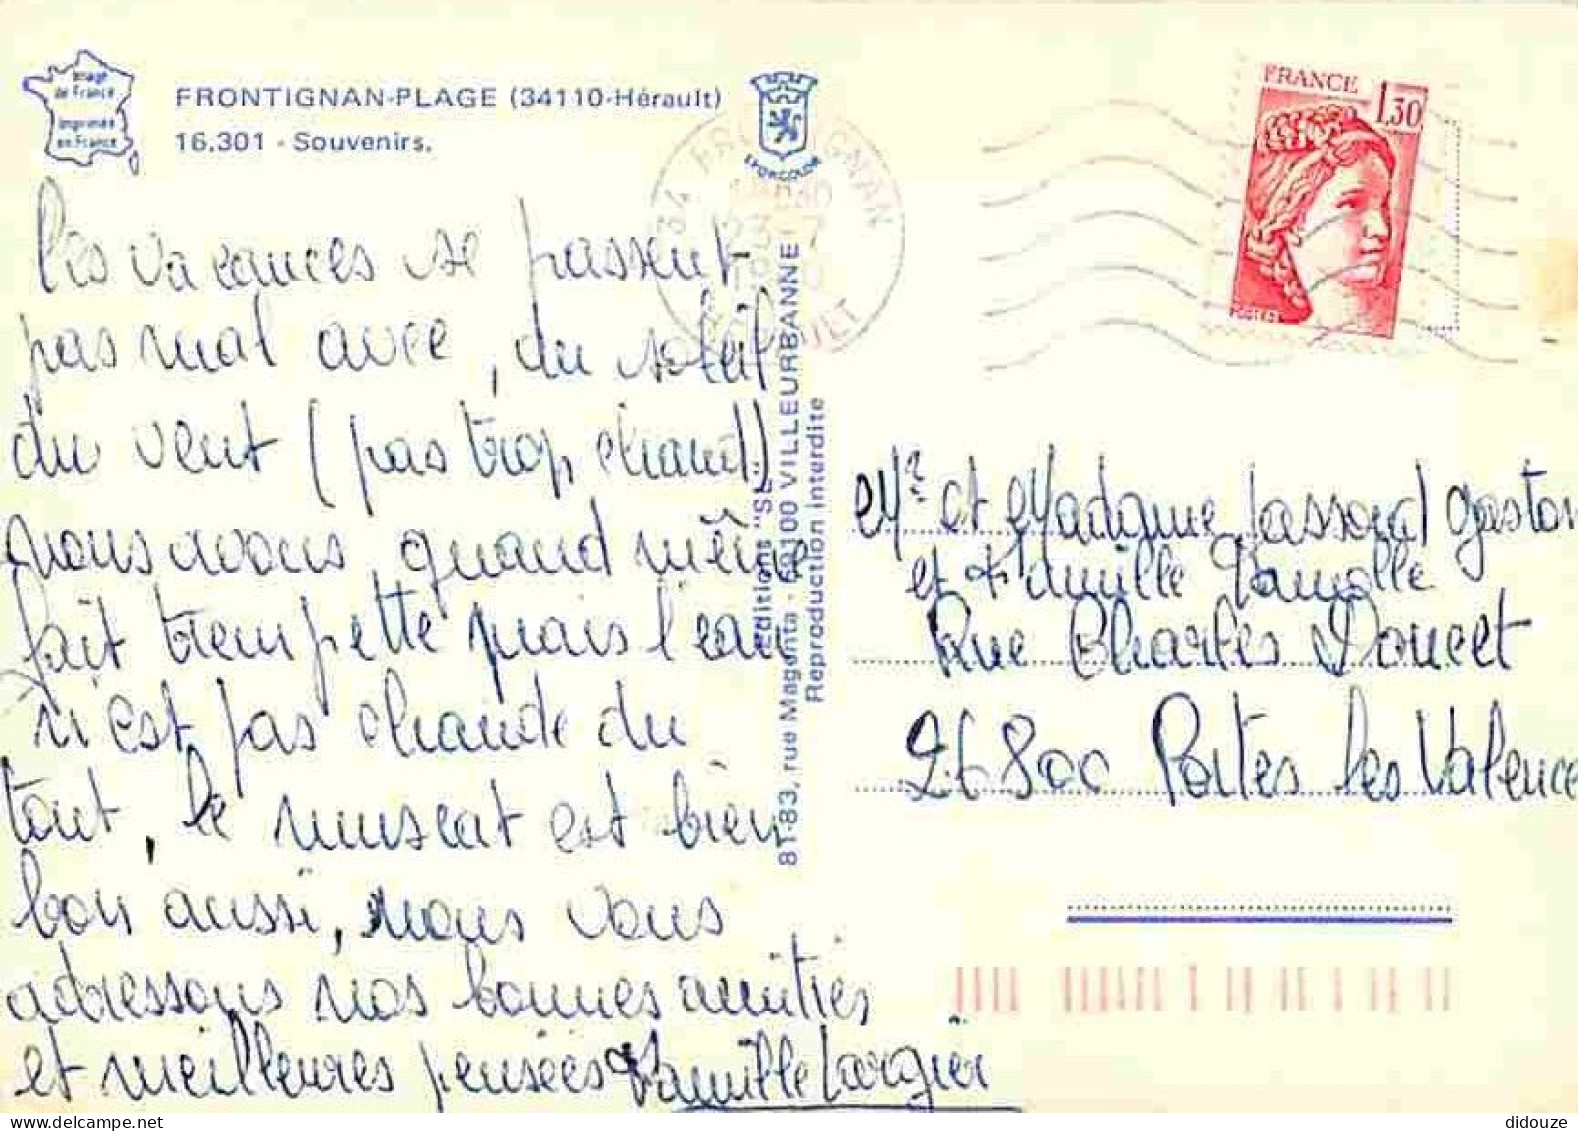 Image
de France
Imprimée
en France
FRONTIGNAN-PLAGE (34110-Hérault)
16.301 - Souvenirs.
EPORCOLOR
FRANCE 1,30
POSTES
34 FRONTIGNAN
les vacances se passent
pas mal avec, du soleil
du vent (pas trop chaud)
nous avons quand même
fait trempette mais l'eau
n'est pas chaude du
tout, le muscat est bien
bon aussi, nous vous
adressons nos bonnes amitiés
et meilleures pensées Famille Largier
Editions "SL"
81-83, rue Magenta - 69100 VILLEURBANNE
Reproduction interdite
Mr et Madame Gaston
et Famille
Rue Charles Doucet
26800 Portes les Valence
didouze